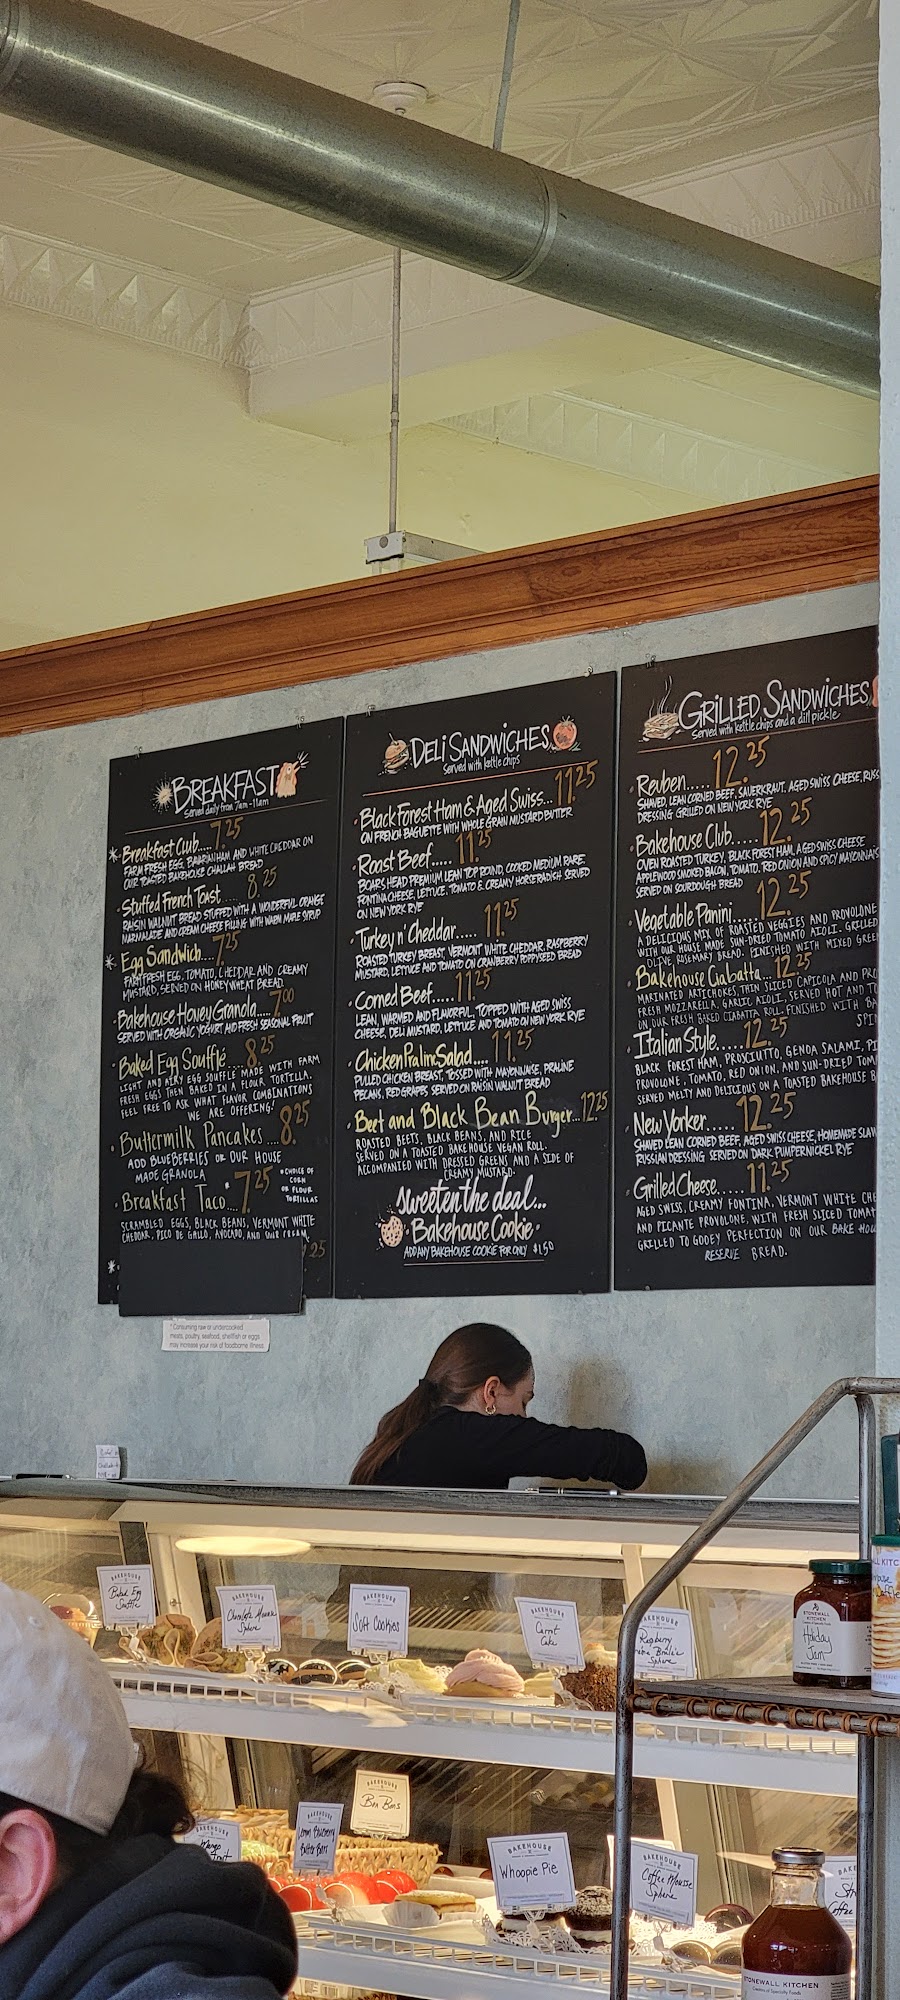 BREAKFAST
Served daily from 7am-11am
* Breakfast Club.... 7.25
FARM FRESH EGG, BAVARIAN HAM AND WHITE CHEDDAR ON
OUR TOASTED BAKEHOUSE CHALLAH BREAD
Stuffed French Toast.... 8.25
RAISIN WALNUT BREAD STUFFED WITH A WONDERFUL ORANGE
MARMALADE AND CREAM CHEESE FILLING WITH WARM MAPLE SYRUP
* Egg Sandwich.... 7.25
FARM FRESH EGG, TOMATO, CHEDDAR AND CREAMY
MUSTARD, SERVED ON HONEY WHEAT BREAD.
Bakehouse Honey Granola.... 7.00
SERVED WITH ORGANIC YOGURT AND FRESH SEASONAL FRUIT
Baked Egg Soufflé.... 8.25
LIGHT AND AIRY EGG SOUFFLE MADE WITH FARM
FRESH EGGS THEN BAKED IN A FLOUR TORTILLA.
FEEL FREE TO ASK WHAT FLAVOR COMBINATIONS
WE ARE OFFERING!
Buttermilk Pancakes .... 8.25
ADD BLUEBERRIES OR OUR HOUSE
MADE GRANOLA
Breakfast Taco* 7.25
*CHOICE OF
CORN
OR FLOUR
TORTILLAS
SCRAMBLED EGGS, BLACK BEANS, VERMONT WHITE
CHEDDAR, PICO DE GALLO, AVOCADO, AND SOUR CREAM.
*
.25
* Consuming raw or undercooked
meats, poultry, seafood, shellfish or eggs
may increase your risk of foodborne illness.
DELI SANDWICHES
Served with kettle chips
Black Forest Ham & Aged Swiss... 11.25
ON FRENCH BAGUETTE WITH WHOLE GRAIN MUSTARD BUTTER
Roast Beef..... 11.25
BOARS HEAD PREMIUM LEAN TOP ROUND, COOKED MEDIUM RARE
FONTINA CHEESE, LETTUCE, TOMATO & CREAMY HORSERADISH SERVED
ON NEW YORK RYE
Turkey n' Cheddar..... 11.25
ROASTED TURKEY BREAST, VERMONT WHITE CHEDDAR, RASPBERRY
MUSTARD, LETTUCE AND TOMATO ON CRANBERRY POPPYSEED BREAD
Corned Beef..... 11.25
LEAN, WARMED AND FLAVORFUL, TOPPED WITH AGED SWISS
CHEESE, DELI MUSTARD, LETTUCE AND TOMATO ON NEW YORK RYE
Chicken Praline Salad.... 11.25
PULLED CHICKEN BREAST, TOSSED WITH MAYONNAISE, PRALINE
PECANS, RED GRAPES SERVED ON RAISIN WALNUT BREAD
Beet and Black Bean Burger... 12.25
ROASTED BEETS, BLACK BEANS, AND RICE
SERVED ON A TOASTED BAKEHOUSE VEGAN ROLL.
ACCOMPANIED WITH DRESSED GREENS AND A SIDE OF
CREAMY MUSTARD.
Sweeten the deal...
Bakehouse Cookie
ADD ANY BAKEHOUSE COOKIE FOR ONLY $1.50
GRILLED SANDWICHES
Served with kettle chips and a dill pickle
Reuben..... 12.25
SHAVED, LEAN CORNED BEEF, SAUERKRAUT, AGED SWISS CHEESE, RUSS
DRESSING GRILLED ON NEW YORK RYE
Bakehouse Club..... 12.25
OVEN ROASTED TURKEY, BLACK FOREST HAM, AGED SWISS CHEESE
APPLEWOOD SMOKED BACON, TOMATO, RED ONION AND SPICY MAYONNAIS
SERVED ON SOURDOUGH BREAD
Vegetable Panini..... 12.25
A DELICIOUS MIX OF ROASTED VEGGIES AND PROVOLONE
WITH OUR HOUSE MADE SUN-DRIED TOMATO AIOLI. GRILLED
OLIVE ROSEMARY BREAD. FINISHED WITH MIXED GREE
Bakehouse Ciabatta... 12.25
MARINATED ARTICHOKES, THIN SLICED CAPICOLA AND PRO
FRESH MOZZARELLA, GARLIC AIOLI, SERVED HOT AND TO
ON OUR FRESH BAKED CIABATTA ROLL. FINISHED WITH BA
SPIN
Italian Style..... 12.25
BLACK FOREST HAM, PROSCIUTTO, GENOA SALAMI, PI
PROVOLONE, TOMATO, RED ONION, AND SUN-DRIED TOM
SERVED MELTY AND DELICIOUS ON A TOASTED BAKEHOUSE B
New Yorker..... 12.25
SHAVED LEAN CORNED BEEF, AGED SWISS CHEESE, HOMEMADE SLAW
RUSSIAN DRESSING SERVED ON DARK PUMPERNICKEL RYE
Grilled Cheese..... 11.25
AGED SWISS, CREAMY FONTINA, VERMONT WHITE CHE
AND PICANTE PROVOLONE, WITH FRESH SLICED TOMAT
GRILLED TO GOOEY PERFECTION ON OUR BAKE HOU
RESERVE BREAD.
BAKEHOUSE
Baked Egg
Souffle
BAKEHOUSE
Chocolate Mousse
Sphere
BAKEHOUSE
Soft Cookies
BAKEHOUSE
Carrot
Cake
BAKEHOUSE
Raspberry
Crème Brulée
Sphere
STONEWALL
KITCHEN
Holiday
Jam
BAKEHOUSE
Bon Bons
BAKEHOUSE
Lemon Blueberry
Butter Bars
Mango
BAKEHOUSE
Whoopie Pie
BAKEHOUSE
Coffee Mousse
Sphere
BAKE
Coffee
STONEWALL KITCHEN
Creators of Specialty Foods